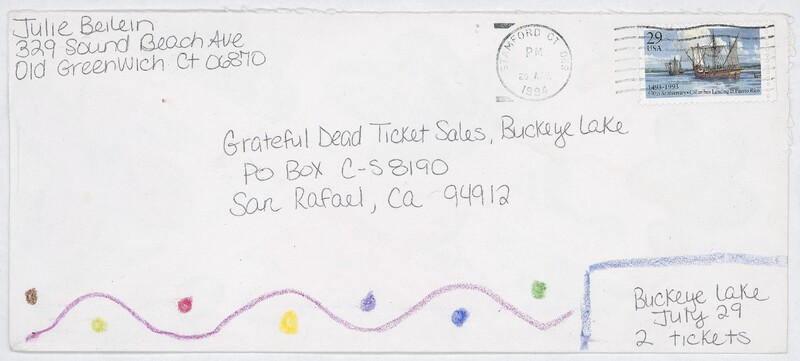 Julie Beilein
329 Sound Beach Ave
Old Greenwich Ct 06870
STAMFORD CT 069
PM
1994
29
USA
1493-1993
500th Anniversary • Columbus Landing in Puerto Rico
Grateful Dead Ticket Sales, Buckeye Lake
PO Box C-S8190
San Rafael, Ca 94912
Buckeye Lake
July 29
2 tickets